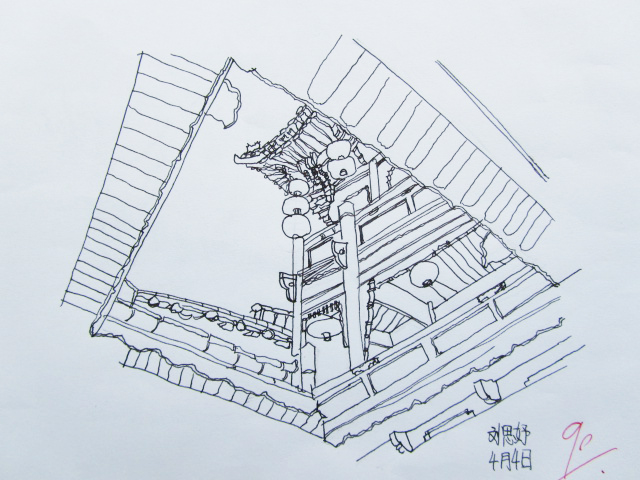 刘思妤
4月4日
90